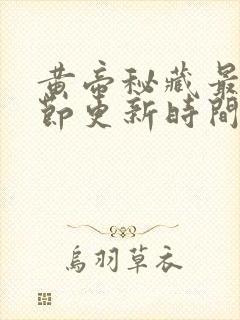 黄帝秘藏最
節更新時間
烏羽草衣